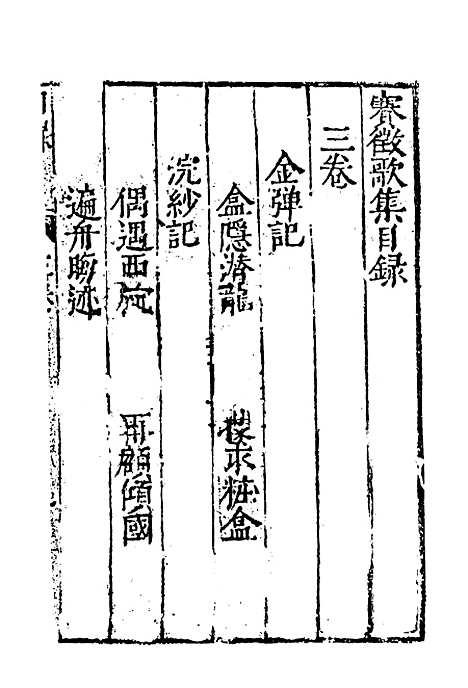 賽徵歌集目録
三卷
金彈記
盒隱潛龍 搜求粧盒
浣紗記
偶遇西施 再顧傾國
遍舟晦迹